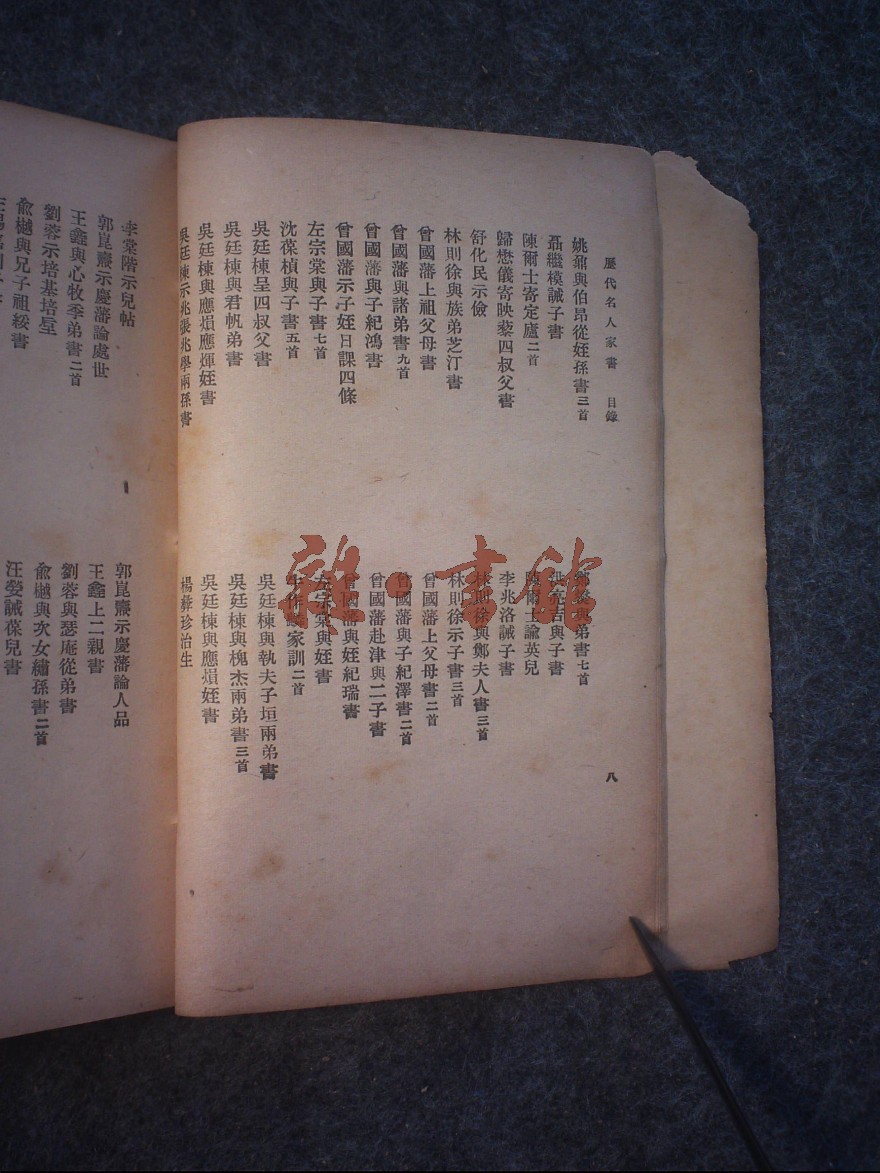 歷代名人家書 目錄
八
姚鼐與伯昂從姪孫書三首
聶繼模誡子書
陳爾士寄定廬二首
歸懋儀寄映藜四叔父書
舒化民示儉
林則徐與族弟芝汀書
曾國藩上祖父母書
曾國藩與諸弟書九首
曾國藩與子紀鴻書
曾國藩示子姪日課四條
左宗棠與子書七首
沈葆楨與子書五首
吳廷棟呈四叔父書
吳廷棟與君帆弟書
吳廷棟與應熉應煇姪書
吳廷棟示兆張兆學兩孫書
鄭燮與弟書七首
洪亮吉與子書
陳爾士諭英兒
李兆洛誡子書
林則徐與鄭夫人書三首
林則徐示子書三首
曾國藩上父母書二首
曾國藩與子紀澤書二首
曾國藩赴津與二子書
曾國藩與姪紀瑞書
左宗棠與姪書
家訓二首
吳廷棟與執夫子垣兩弟書
吳廷棟與槐杰兩弟書三首
吳廷棟與應熉姪書
楊彝珍治生
李棠階示兒帖
郭崑燾示慶藩論處世
王鑫與心牧季弟書二首
劉蓉示培基培垕
俞樾與兄子祖綏書
郭崑燾示慶藩論人品
王鑫上二親書
劉蓉與瑟庵從弟書
俞樾與次女繡孫書二首
汪㷀誡葆兒書
雜·書館